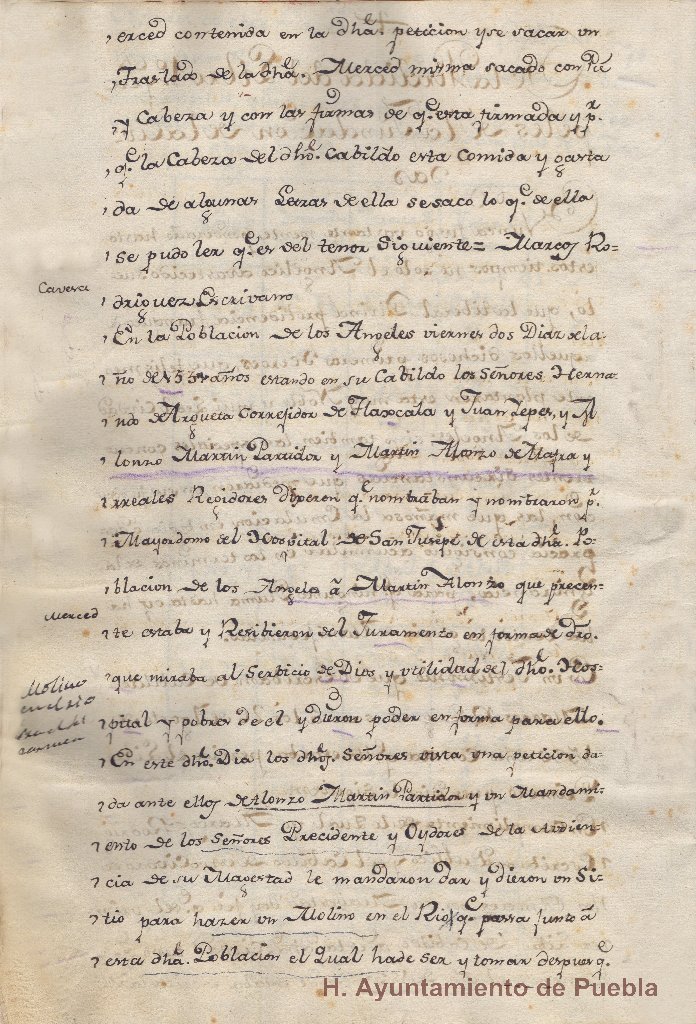 erced contenida en la dha. peticion y se sacar vn
Traslado de la dha. Merced misma sacado con Pie
y Cabeza y con las firmas de q.e esta firmada y p.r
q.e la Cabeza del dho. Cabildo esta Comida y gasta
da de algunas Letras de ella se saco lo q.e de ella
se pudo ler q.e es del tenor Siguiente= Marcos Ro=
Cavesa
driguez Escrivano
En la Poblacion de los Angeles viernes dos Diaz de la
ño de años estando en su Cabildo los Señores Herna
ndo de Argueta Corregidor de Tlaxcala y Juan Lepes, y Al
lonzo Martin Partidor y Martin Alonzo de Mafra y
rreales Regidores dixeron q.e nombraban y nombraron p.r
Mayordomo del Hospital de San Jusept. de esta dha. Po=
blacion de los Angeles â Martin Alonzo que precen=
Merced
te estaba y Resibieron del Juramento en forma de dro.
que miraba al Serbicio de Dios y vtilidad del dho. Hos=
Molino
en el rio
pital y pobres de el y dieron poder en forma para ello.
En este dho. Dia los dhos. Señores vista vna peticion da=
da ante ellos de Alonzo Martin Partidor y vn Mandami=
ento de los Señores Precidente y Oydores de la Audien=
cia de su Magestad le mandaron dar y dieron vn Si=
tio para hazer vn Molino en el Rio q.e passa junto â
esta dha. Poblacion el Qual hade ser y tomar despues q.e
H. Ayuntamiento de Puebla